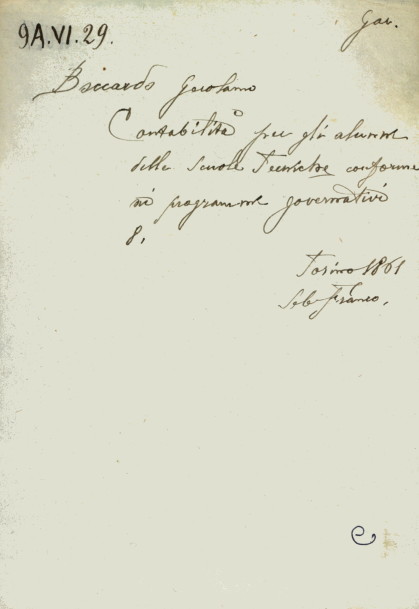 9A.VI.29.
Gav.
Boccardo Gerolamo
Contabilità per gli alunni
delle Scuole Tecniche conforme
ai programmi governativi
8.
Torino 1861
Seb. Franco.